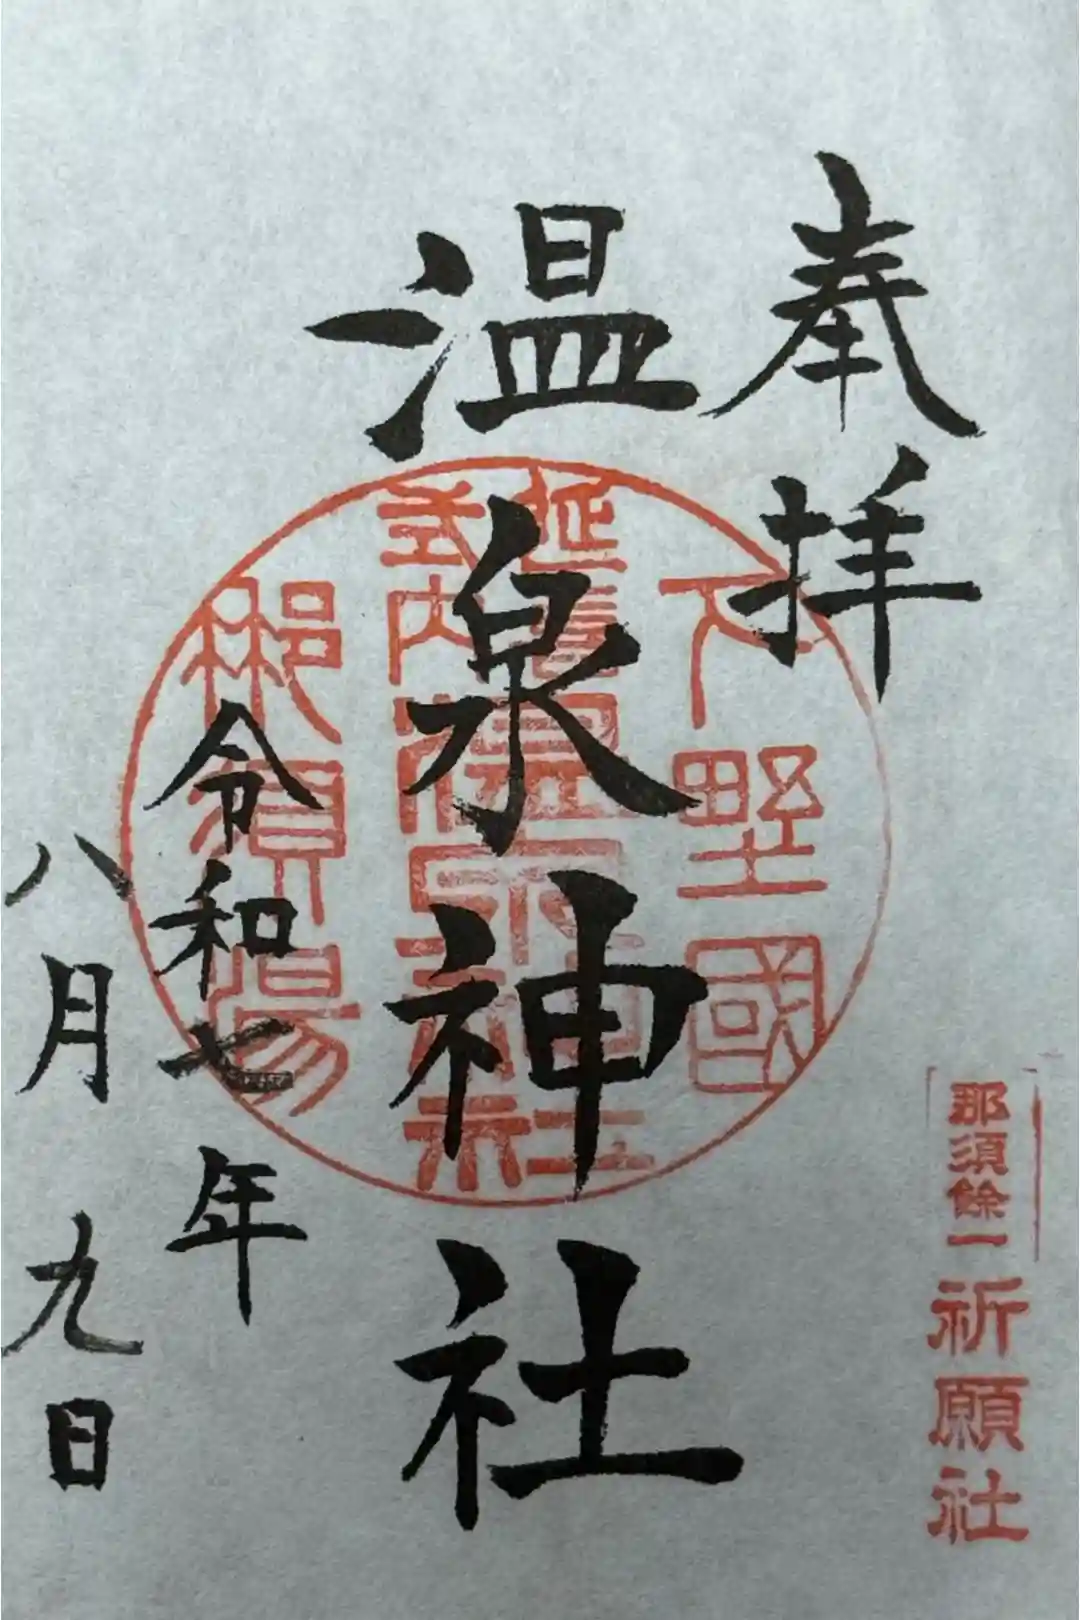 奉拝
那須餘一
祈願社
温泉神社
下野國
延喜
式内
那須湯
令和七年
八月九日